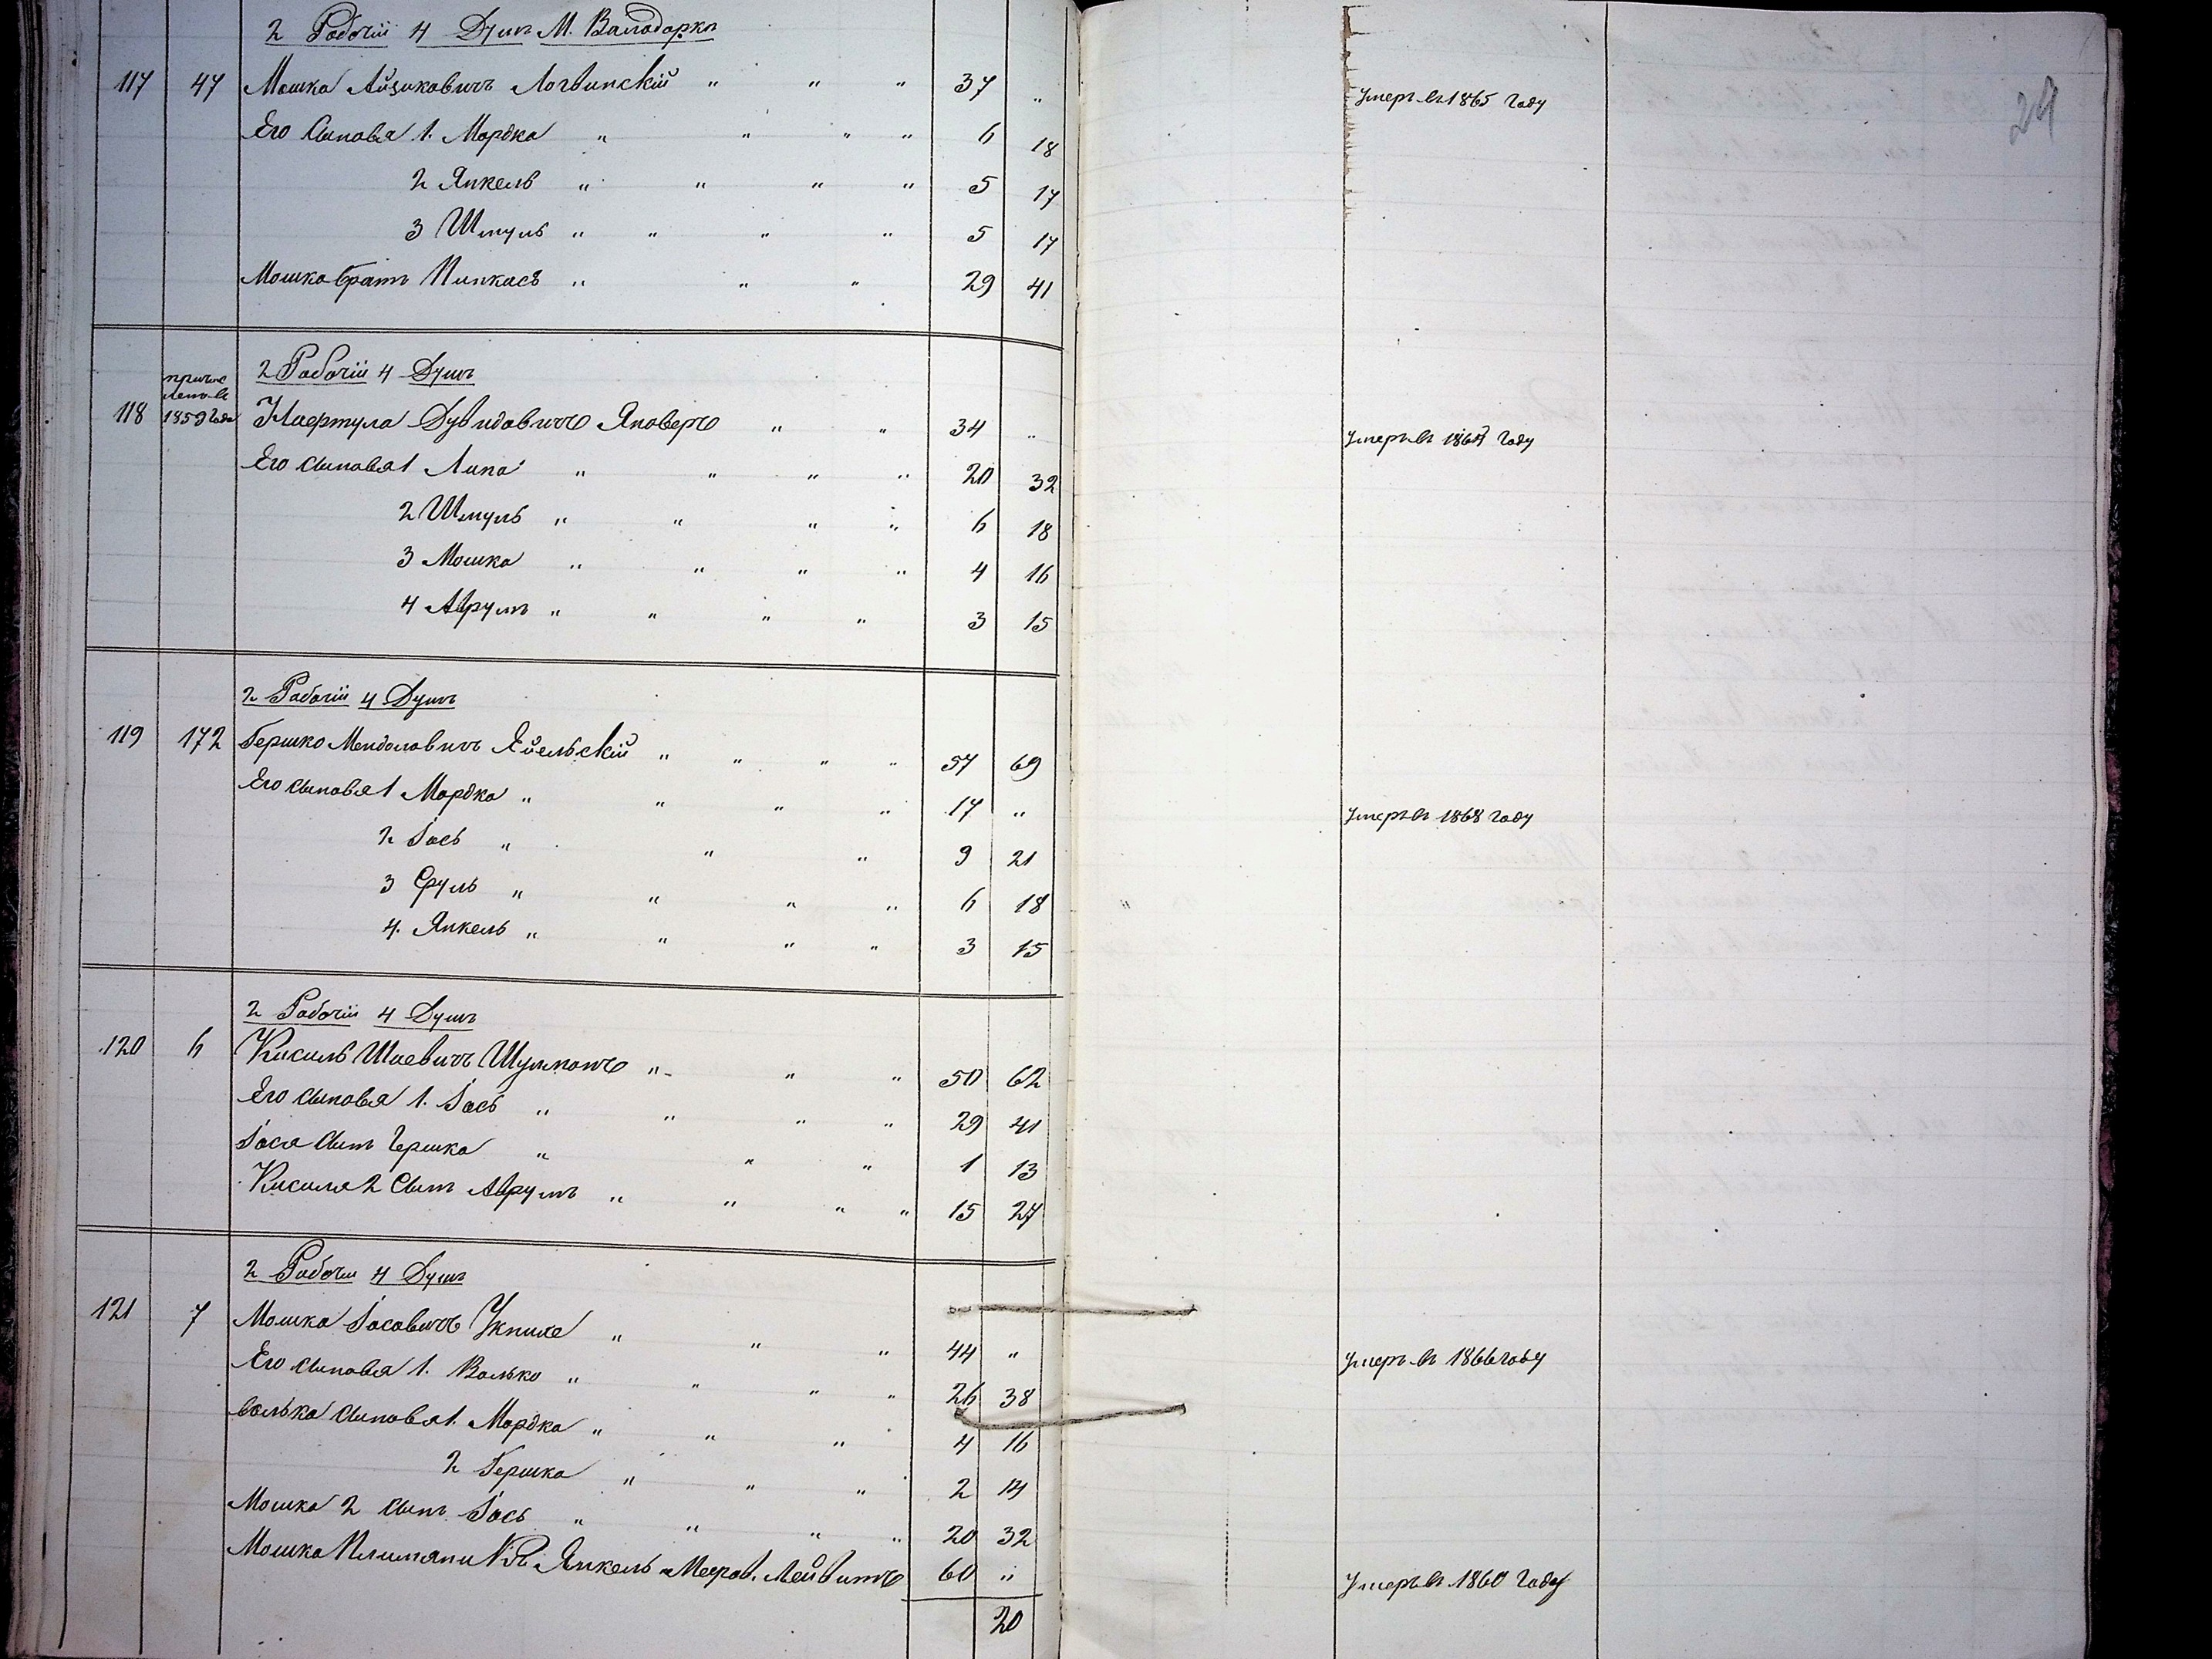 2 Рабочiи 4 Душъ М. Володарки
117 47 Мошка Айзиковичъ Логвинскiй " " " 37 " Умеръ въ 1865 Году
29
Его Сыновья 1. Мордка " " " " 6 18
2 Янкель " " " " 5 17
3 Шмуль " " " " 5 17
Мошка братъ Пинкасъ " " " 29 41
2 Рабочiи 4 Душъ
118 1859 Года Дувидовичъ Яноверъ " " 34 " Умеръ въ Году
Его сыновья 1 Липа " " " " 20 32
2 Шмуль " " " " 6 18
3 Мошка " " " " 4 16
4 Аврумъ " " " " 3 15
2 Рабочiи 4 Душъ
119 172 Гершко Мендоловичъ " " " " 57 69
Его сыновья 1 Мордка " " " " 17 " Умеръ въ 1868 году
2 Iось " " " 9 21
3 Сруль " " " " 6 18
4. Янкель " " " " 3 15
2 Рабочiи 4 Душъ
120 6 Кисиль Шаевичъ Шулманъ " " " 50 62
Его сыновья 1. Iось " " " " 29 41
Iося Сынъ Гершка " " " 1 13
Кисиля 2 Сынъ Аврумъ " " " " 15 27
2 Рабочiи 4 Душъ
121 7 Мошка Iосовичъ " " " 44 " Умеръ въ 1866 году
Его сыновья 1. Волько " " " " 26 38
Волька сыновья 1. Мордка " " " 4 16
2 Гершка " " " 2 14
Мошка 2 сынъ Iось " " " " 20 32
Мошка Янкель Мееров. 60 " Умеръ въ 1860 Году
20